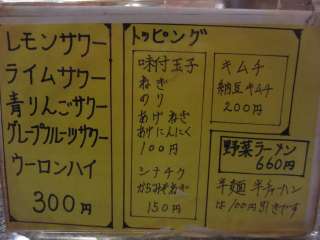 レモンサワー
ライムサワー
青りんごサワー
グレープフルーツサワー
ウーロンハイ
300円
トッピング
味付玉子
ねぎ
のり
あげねぎ
あげにんにく
100円
シナチク
からみそあか
150円
キムチ
納豆キムチ
200円
野菜ラーメン
660円
半麺 半チャーハン
は100円引きです